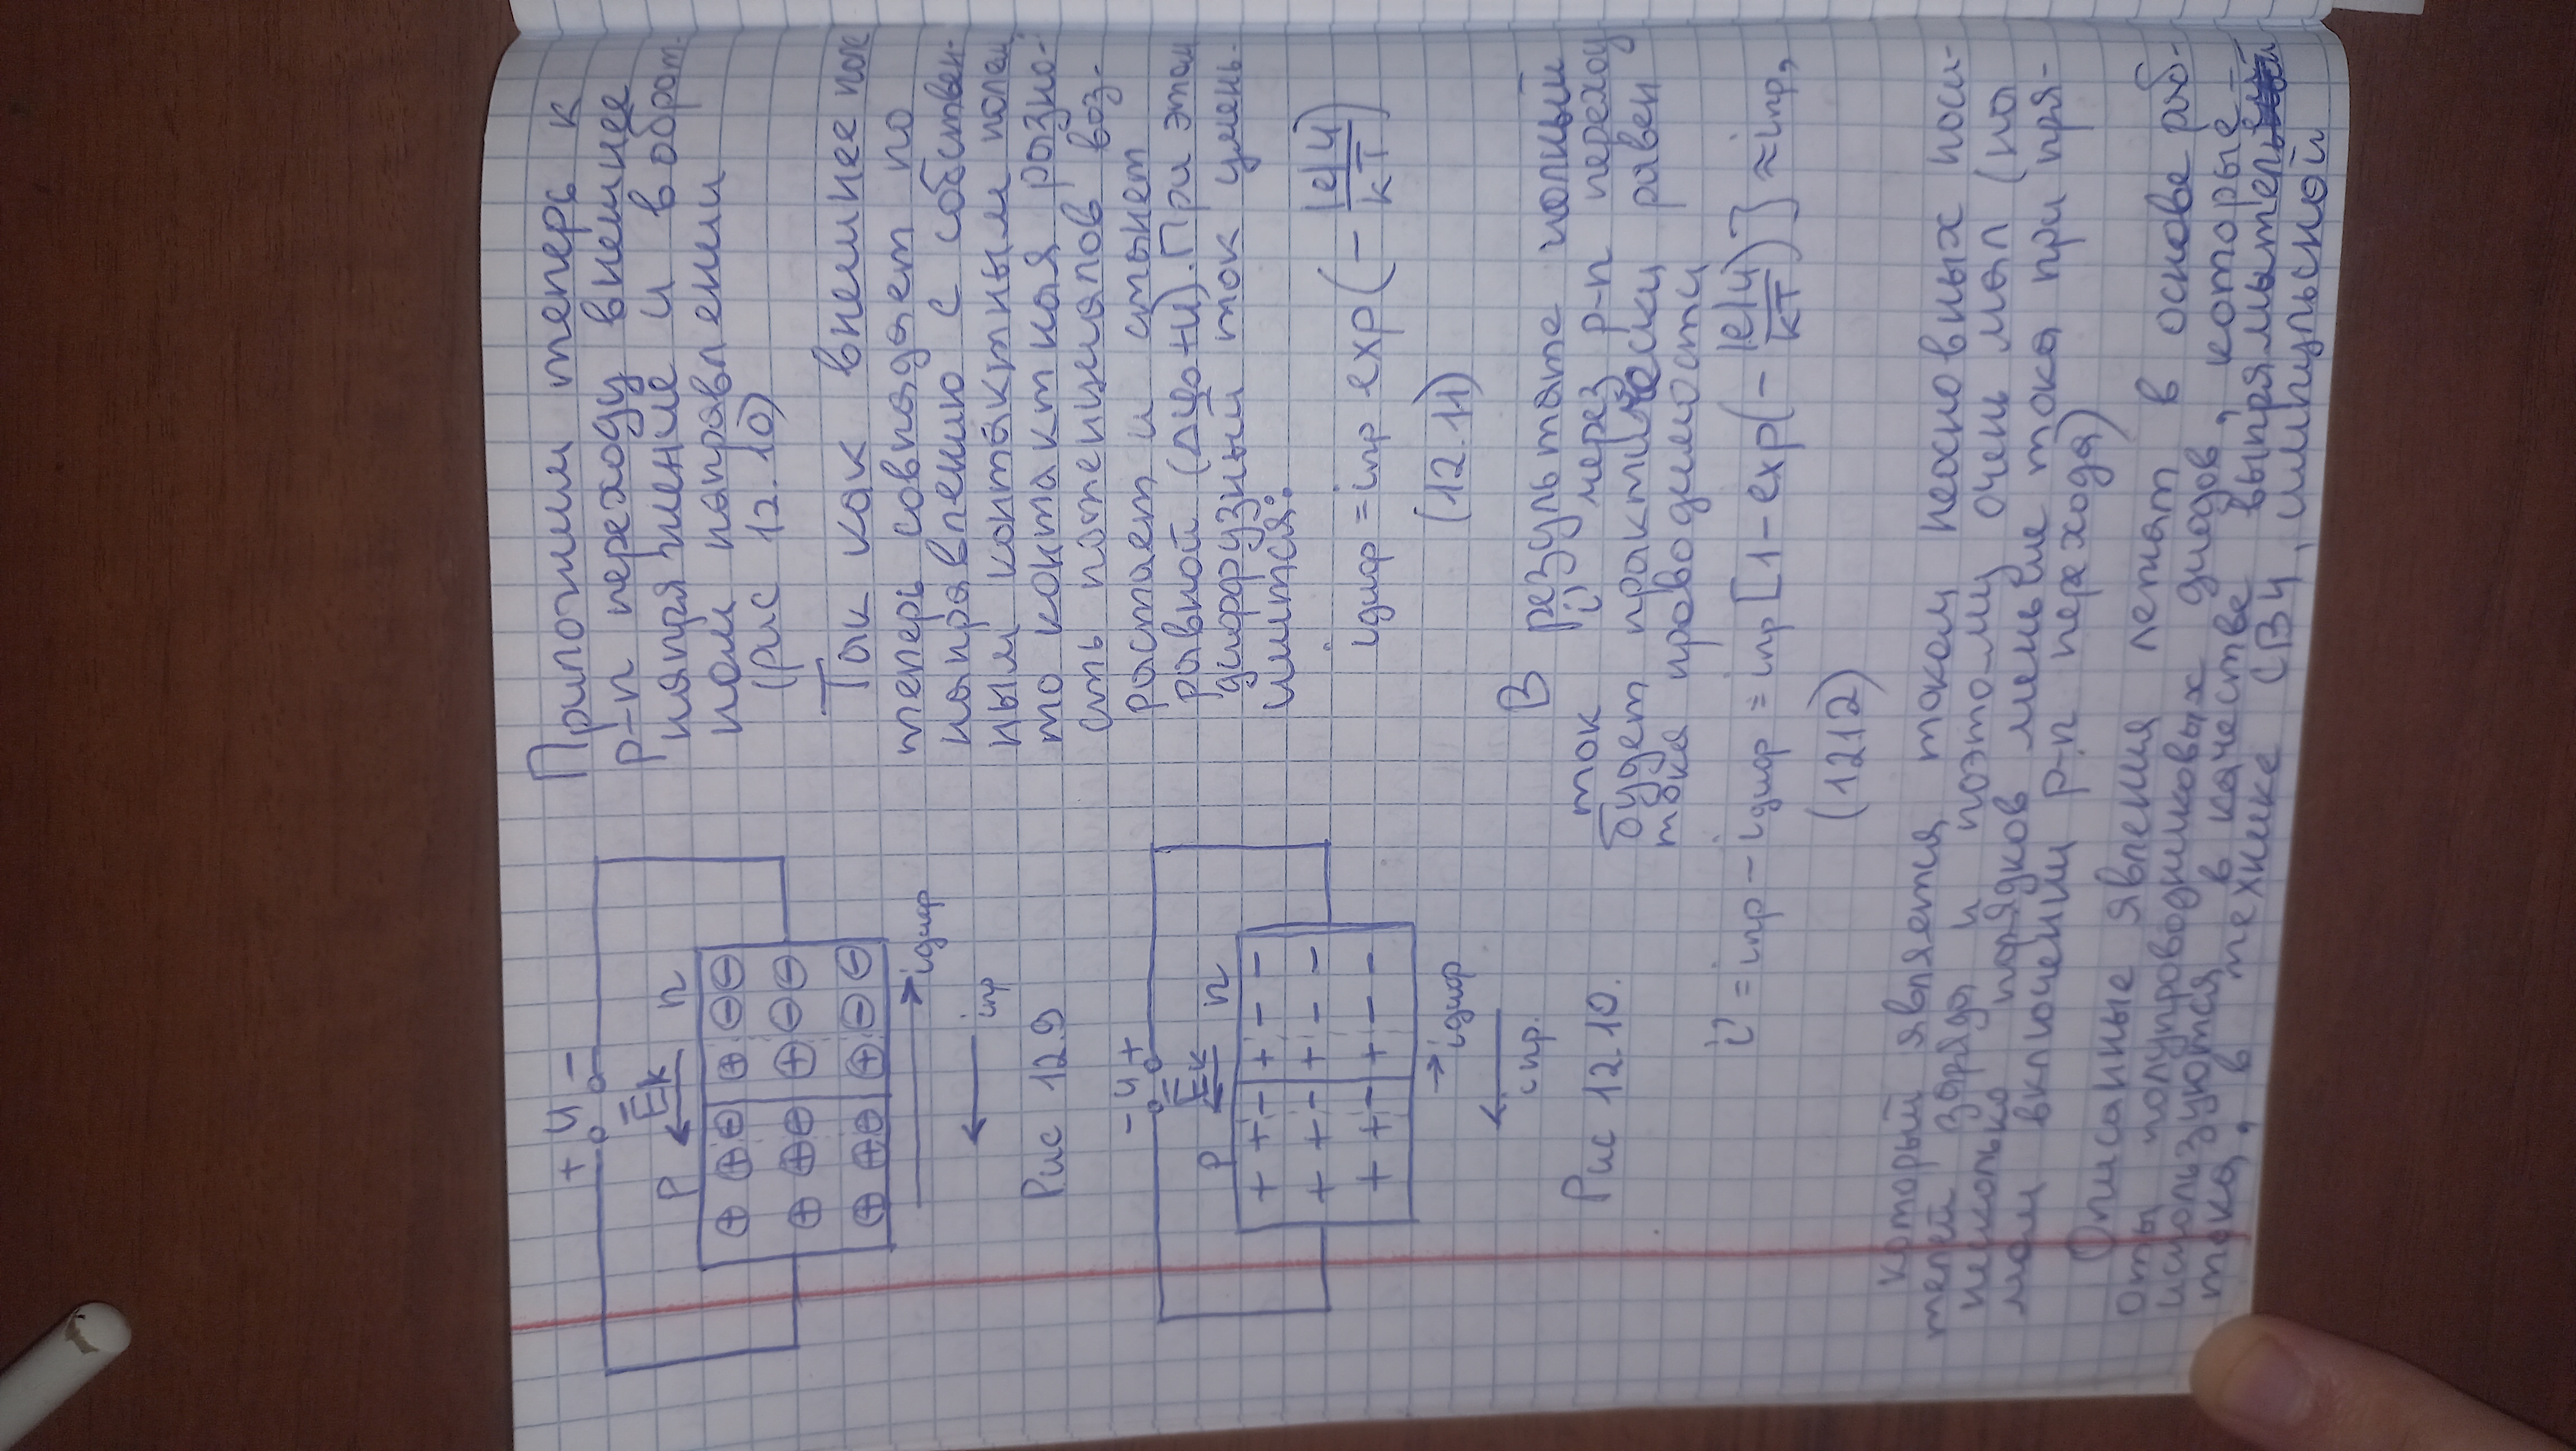 + U −
Eк
p n
⊕ ⊕⊖ ⊕ ⊖⊖
⊕ ⊕⊖ ⊕ ⊖⊖
⊕ ⊕⊖ ⊕ ⊖⊖
iдиф
iпр
Рис 12.9
− U +
Eк
p n
+ + − + − −
+ + − + − −
+ + − + − −
iдиф
iпр.
Рис 12.10.
Приложим теперь к
p-n переходу внешнее
напряжение и в обрат-
ном направлении
(рис 12.10)
Так как внешнее поле
теперь совпадает по
направлению с собствен-
ным контактным полем,
то контактная разно-
сть потенциалов воз-
растает и станет
равной (Δφ₀+U). При этом
диффузный ток умень-
шится:
iдиф = iпр exp(− |e|U / kT)
(12.11)
В результате полный
ток i' через p-n переход
будет практически равен
тока проводимости
i' = iпр − iдиф = iпр [1 − exp(− |e|U / kT)] ≈ iпр,
(1212)
который является током неосновных носи-
телей заряда и поэтому очень мал (на
несколько порядков меньше тока при пря-
мом включении p-n перехода)
Описанные явления лежат в основе раб-
оты полупроводниковых диодов, которые
используются в качестве выпрямител
тока, в технике СВЧ, импульсной